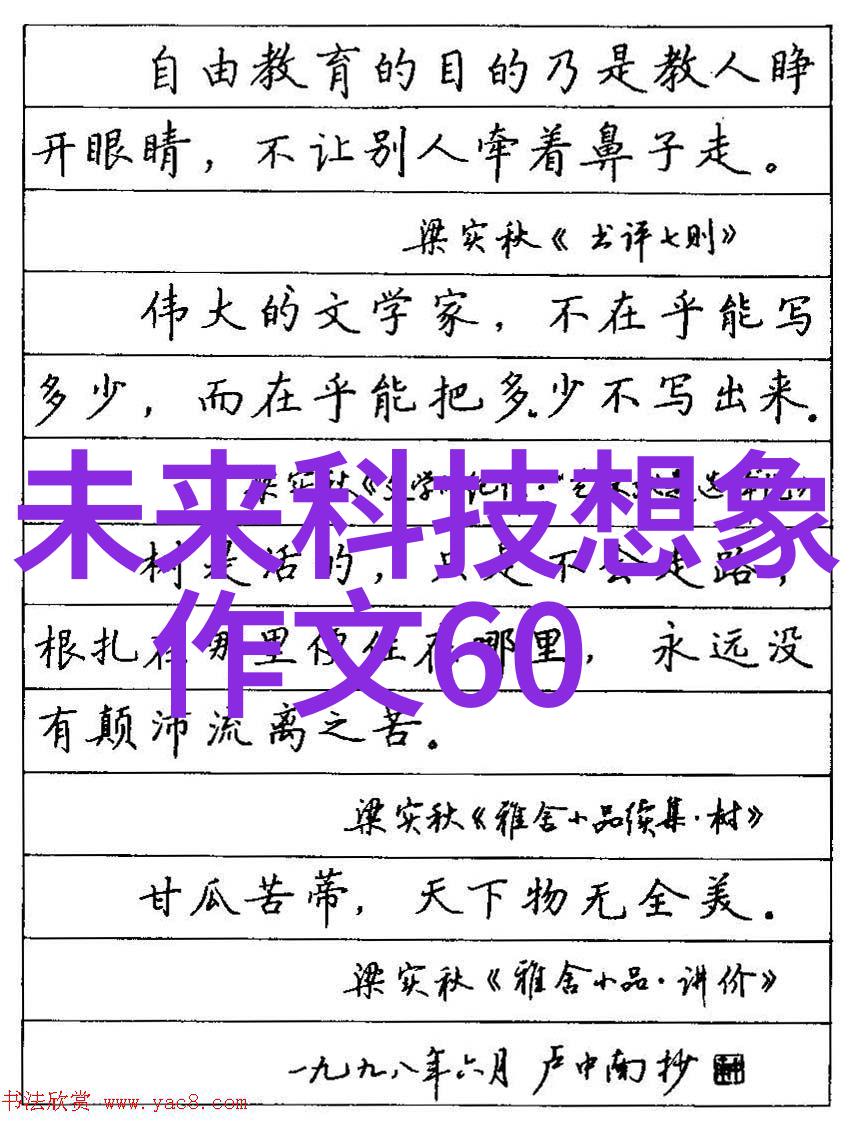 自由教育的目的乃是教人睁
开眼睛，不让别人牵着鼻子走。
梁实秋《书评七则》
伟大的文学家，不在乎能写
多少，而在乎能把多少不写出来。
梁实秋《文学
未来科技想象
树是活的，只是不会走路，
作文60
根扎在那里便住在那里，永远没
有颠沛流离之苦。
梁实秋《雅舍小品续集·树》
甘瓜苦蒂，天下物无全美。
梁实秋《雅舍小品·讲价》
一九九八年六月 卢中南抄
书法欣赏 www.yac8.com